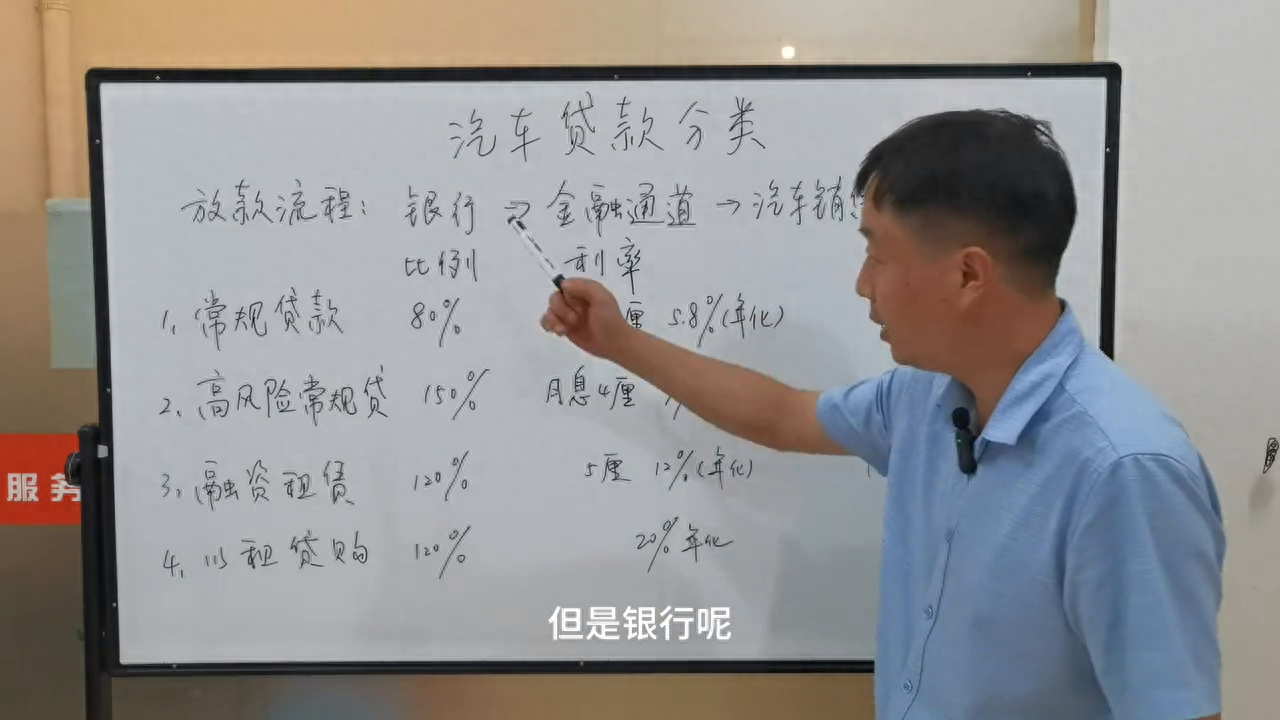 汽车贷款分类
放款流程: 银行 → 金融通道 → 汽车销
比例 利率
1、常规贷款 80% 厘 5.8%(年化)
2、高风险常规贷 150% 月息4厘
3、融资租赁 120% 5厘 12%(年化)
4、以租贷购 120% 20%年化
服务
但是银行呢